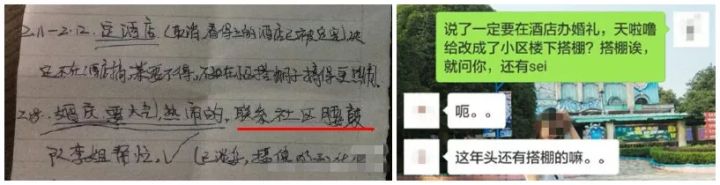 2.11-2.12. 定酒店(取消，看得上的酒店已被定完)，决
定不在酒店搞，菜要不得，不如在小区搭棚子搞得更热闹。
2.18. 婚庆要大气热闹的，联系社区腰鼓
队李姐帮忙。✓ (已消
说了一定要在酒店办婚礼，天啦噜
给改成了小区楼下搭棚？搭棚诶，
就问你，还有sei
呃。。
这年头还有搭棚的嘛。。